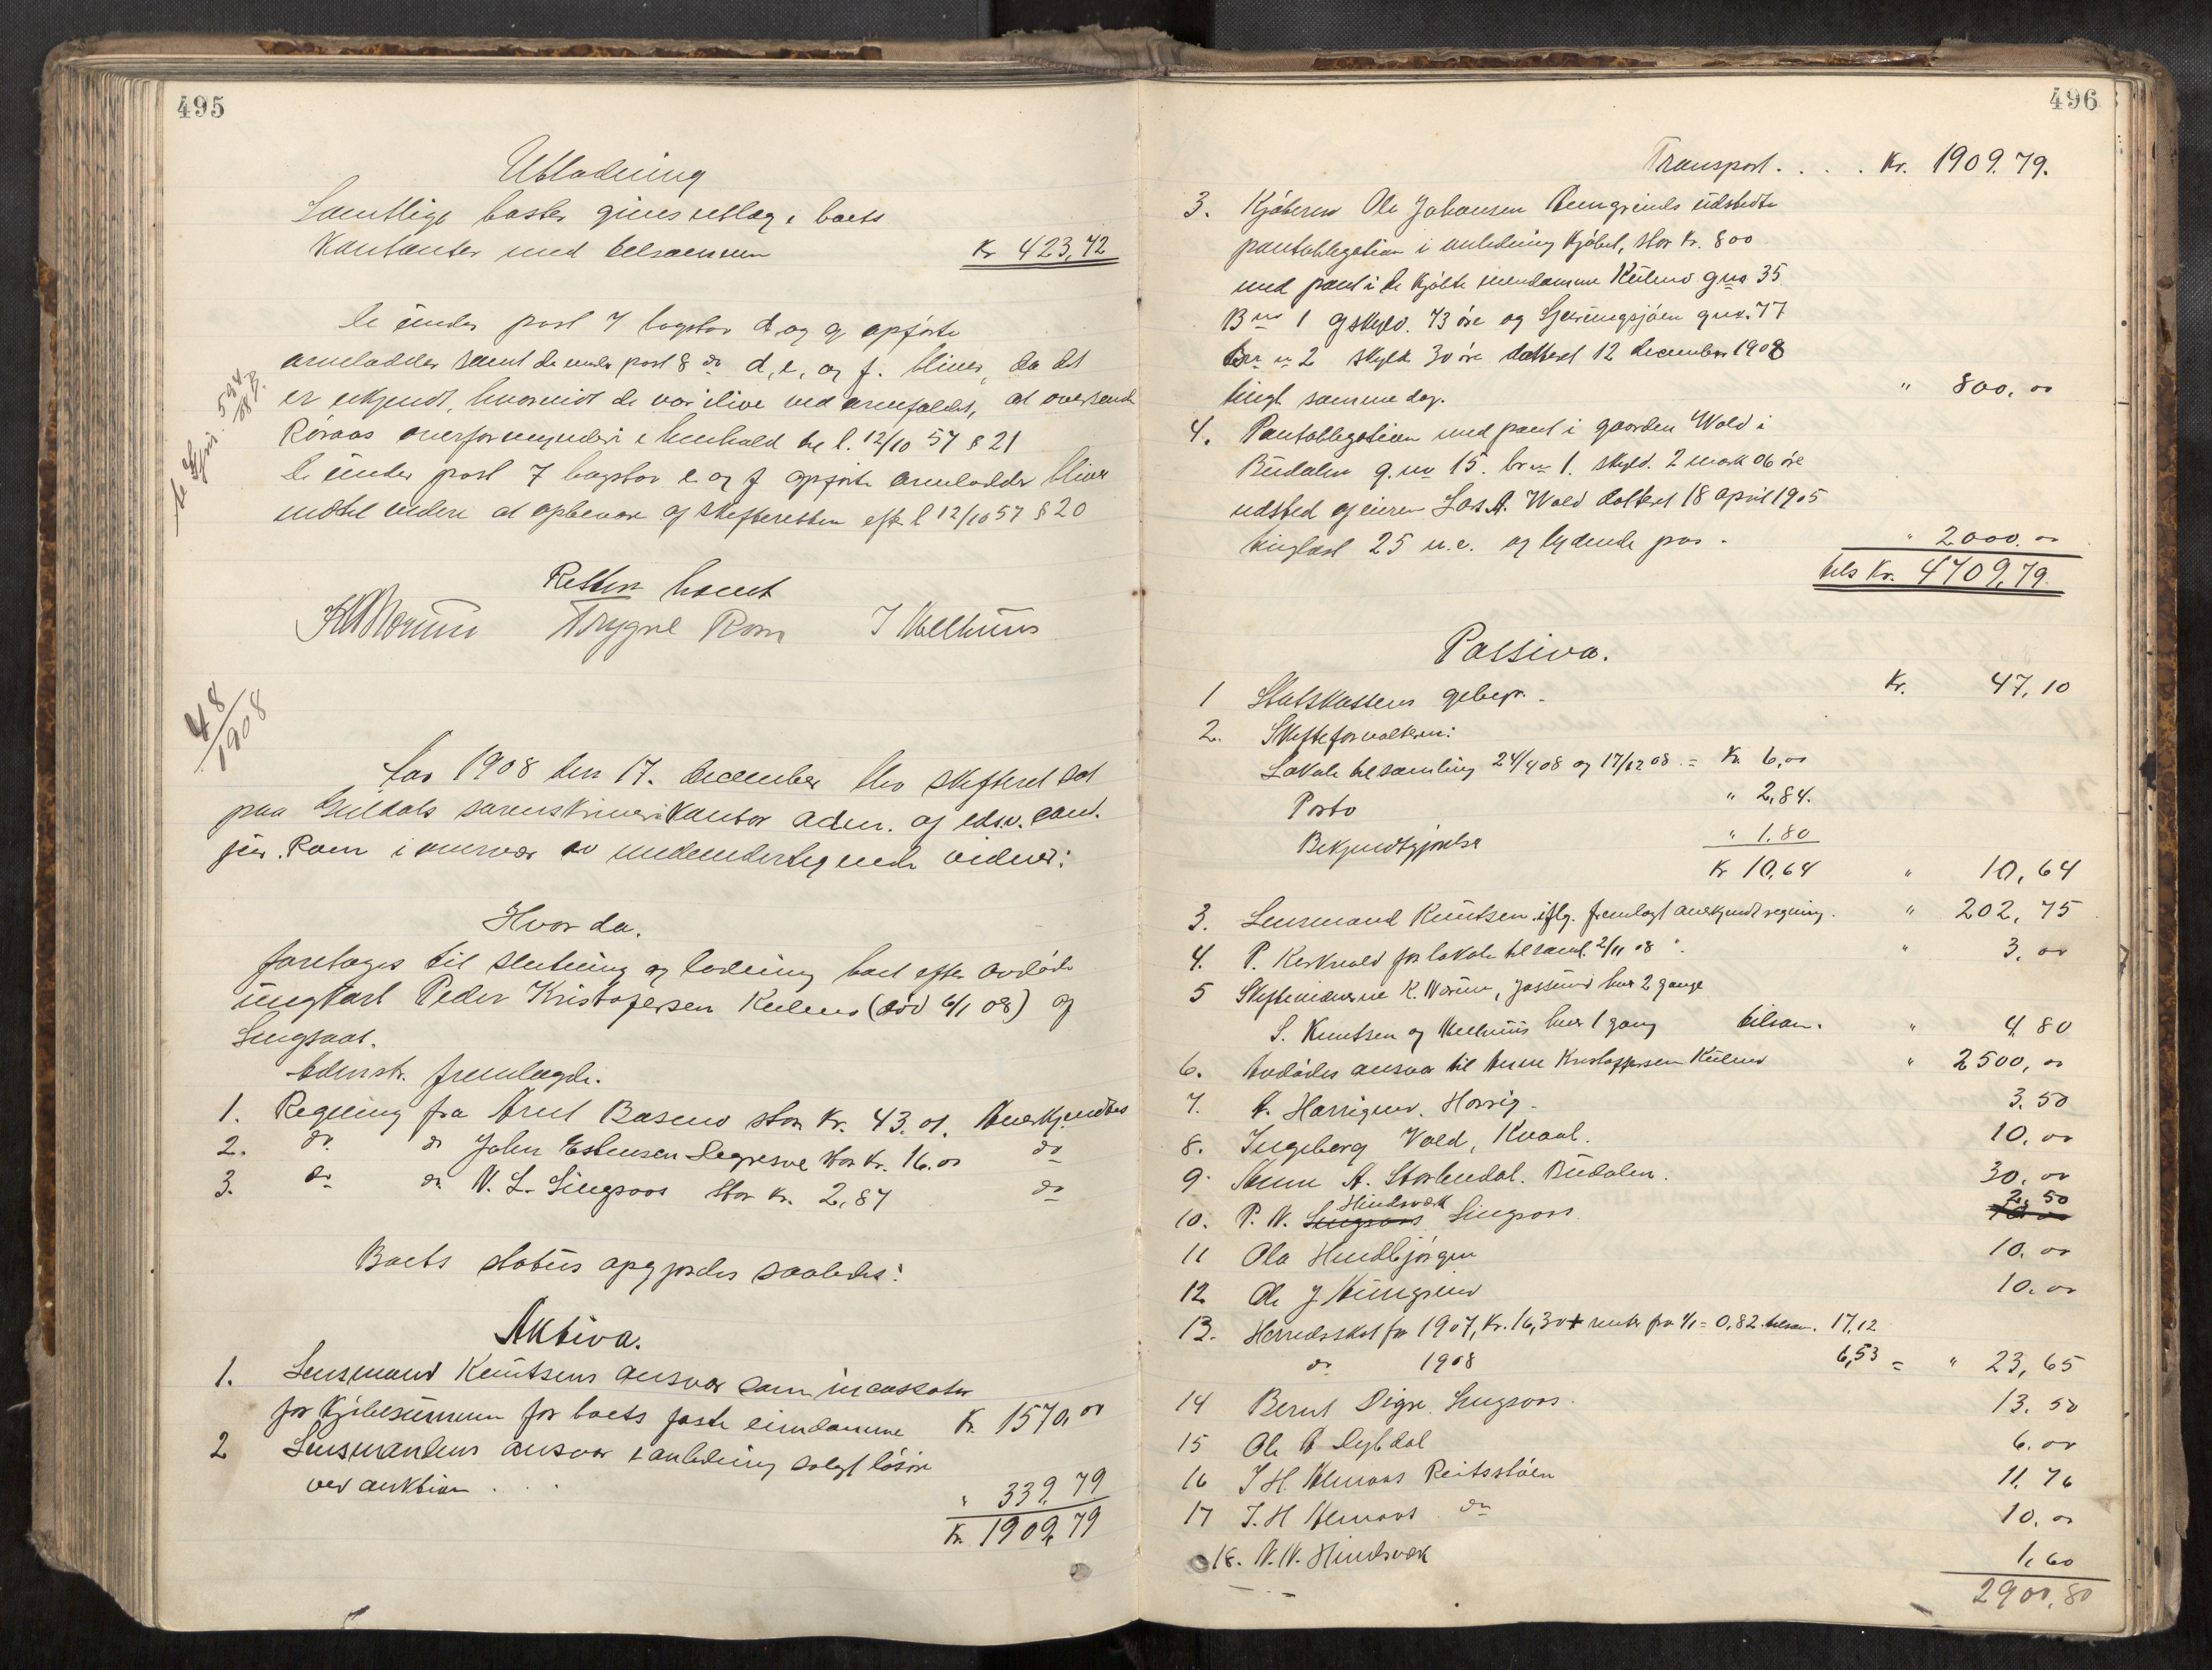 495
Utlodning
Samtlige poster gives utlæg i boets
Kontanter med tilsammen Kr 423,42
De under post 7 bogstav d og g opførte
arvelodder samt de under post 8 do d, e, og f. bliver, da det
er ukjendt, hvorvidt de var ilive ved arvefaldet, at oversende
Røraas overformynderi i henhold til l. 12/10 57 § 21
De under post 7 bogstav e og f opførte arvelodder bliver
indtil videre at opbevare af skifteretten efter l 12/10 57 § 20
Retten hævet
Trygve Rom
48/1908
Aar 1908 den 17. december blev skifteret sat
paa Guldals sorenskriverikontor adm. af edsv. cand.
jur. Rom i overvær av undertegnede vidner:
Hvor da.
foretages til slutning og lodning boet efter avdøde
ungkarl Peder Kristofersen Kulens (død 6/1 08) af
Singsaas.
Adminstr. fremlagde.
1. Regning fra Arnt Basmo stor Kr. 43.01. Anerkjendtes
2. do. do John Estensen Digresve stor Kr. 16.00 do
3. do do. N. L. Singsaas stor Kr. 2,87 do
Boets status opgjordes saaledes:
Aktiva.
1. Lensmand Knutsens ansvar som incassator
for kjøbesummen for boets faste eiendomme Kr. 1570,00
2 Lensmandens ansvar i anledning solgt løsøre
ved auktion . . . " 339,79
Kr. 1909,79
496
Transport. . . . Kr. 1909.79.
3. Kjøberen Ole Johansen Aungrinds udstedte
pantobligation i anledning kjøbet, stor Kr. 800
med pant i de kjøbte eiendomme Kulens gno 35
Bno 1 af skyld. 73 øre og gno. 77
Bno 2 skyld 30 øre datteret 12 december 1908
tingl. samme dag. " 800,00
4. Pantobligation med pant i gaarden Wold i
Budalen g.no 15. br no 1. skyld. 2 mark 06 øre
udsted af eieren Lars A. Wold datteret 18 april 1905
tinglæst 25 n.e. og lydende paa - " 2000.00
tils Kr. 4709,79.
Passiva.
1 Statskassens gebyr. - Kr. 47,10
2. Skifteforvalteren:
Lokale til samling 24/4 08 og 17/12 08 = Kr. 6,00
Porto " 2,84.
Bekjendtgjørelse " 1.80
Kr 10,64 " 10,64
3. Lensmand Knutsen iflg. fremlagt anerkjendt regning. " 202,75
4. P. Kirkvold for lokale til saml. 2/11 08 ". " 3,00
5 Skiftevidnerne K. Norum, Jossund hver 2 gange
S. Knutsen og Melhuus hver 1 gang tilsam. " 4,80
6. Avdødes ansvar til Anne Kristoffersen Kulens " 2500,00
7. A. Horrigmo. Horrig. 3.50
8. Ingeborg Vold, Kvaal. 10,00
9. Anne A. Storbudal. Budalen. 30,00
10. P. N. Singsaas Hindsvæk Singsaas 2,50
11 Ola Hindbjørgen 10.00
12 Ole J Aungrind 10.00
13. Herredsskat for 1907, Kr. 16,30 + renter fra 1/1 = 0,82 tilsam. 17,12
do 1908 6,53 = " 23,65
14 Bernt Digre. Singsaas. 13.50
15 Ole A Dybdal 6.00
16 J H Almaas Reitsstøen 11,76
17 J. H Almaas do 10.00
18. N. N. Hindsvæk 1,60
2900,80